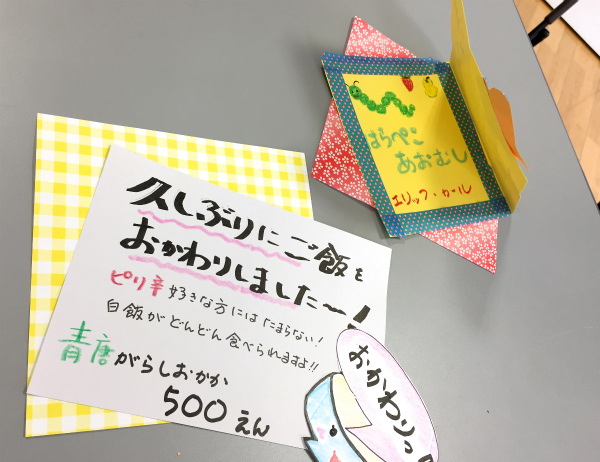 久しぶりにご飯を
おかわりしました〜!
ピリ辛好きな方にはたまらない!
白飯がどんどん食べられますよ!!
青唐がらしおかか
500えん
おかわりっ
はらぺこ
あおむし
エリック・カール